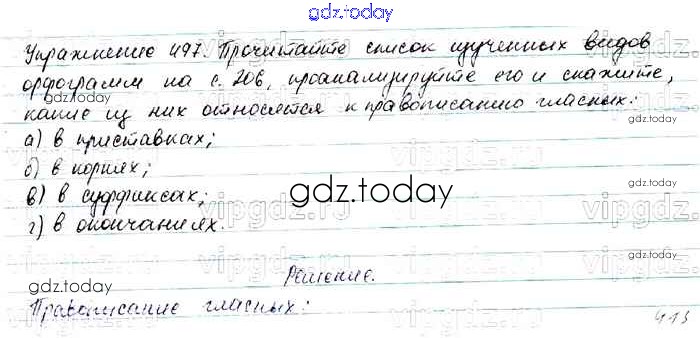 gdz.today
Упражнение 497. Прочитайте список изученных видов
орфограмм на с. 206, проанализируйте его и скажите,
какие из них относятся к правописанию гласных:
а) в приставках;
б) в корнях;
в) в суффиксах;
г) в окончаниях.
Решение.
Правописание гласных:
413
gdz.today
gdz.today
gdz.today
gdz.today
gdz.today
vipgdz.ru
vipgdz.ru
vipgdz.ru
vipgdz.ru